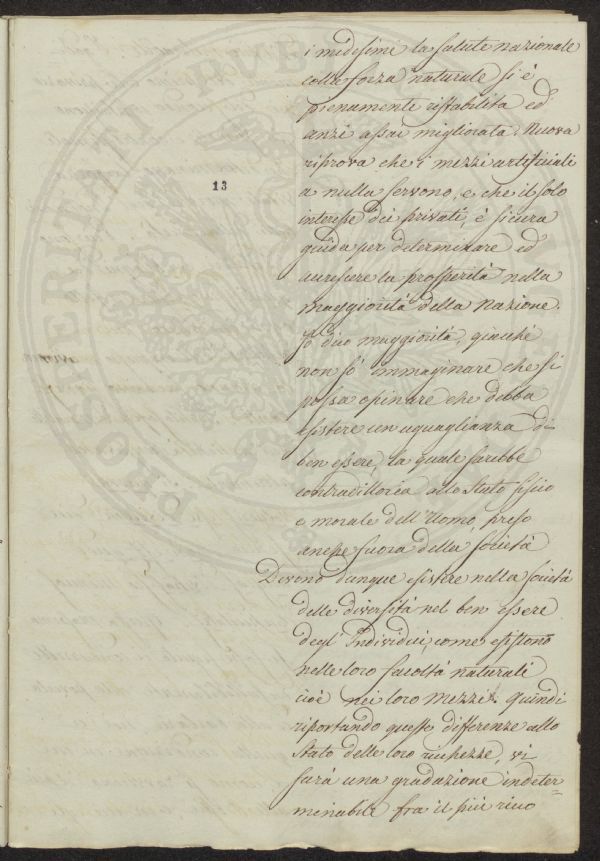 i medesimi la salute nazionale
colle forza naturale si è
pienamente ristabilita ed
anzi assai migliorata. Nuova
riprova che i mezzi artificiali
13
a nulla servono, e che il solo
interesse dei privati, è sicura
guida per determinare ed
accrescere la prosperità nella
maggiorità della Nazione.
Io dico maggiorità, giacchè
non sò immaginare che si
possa opinare che debba
esistere un uguaglianza di
ben essere, la quale sarebbe
contradittoria allo Stato fisico
e morale dell'Uomo, preso
anche fuora della società
Devono dunque esistere nella società
delle diversità nel ben essere
degl'Individui, come esistono
nelle loro facoltà naturali
cioè nei loro mezzi. Quindi
riportando queste differenze allo
Stato delle loro ricchezze, vi
sarà una gradazione indeter=
minabile fra il più ricco